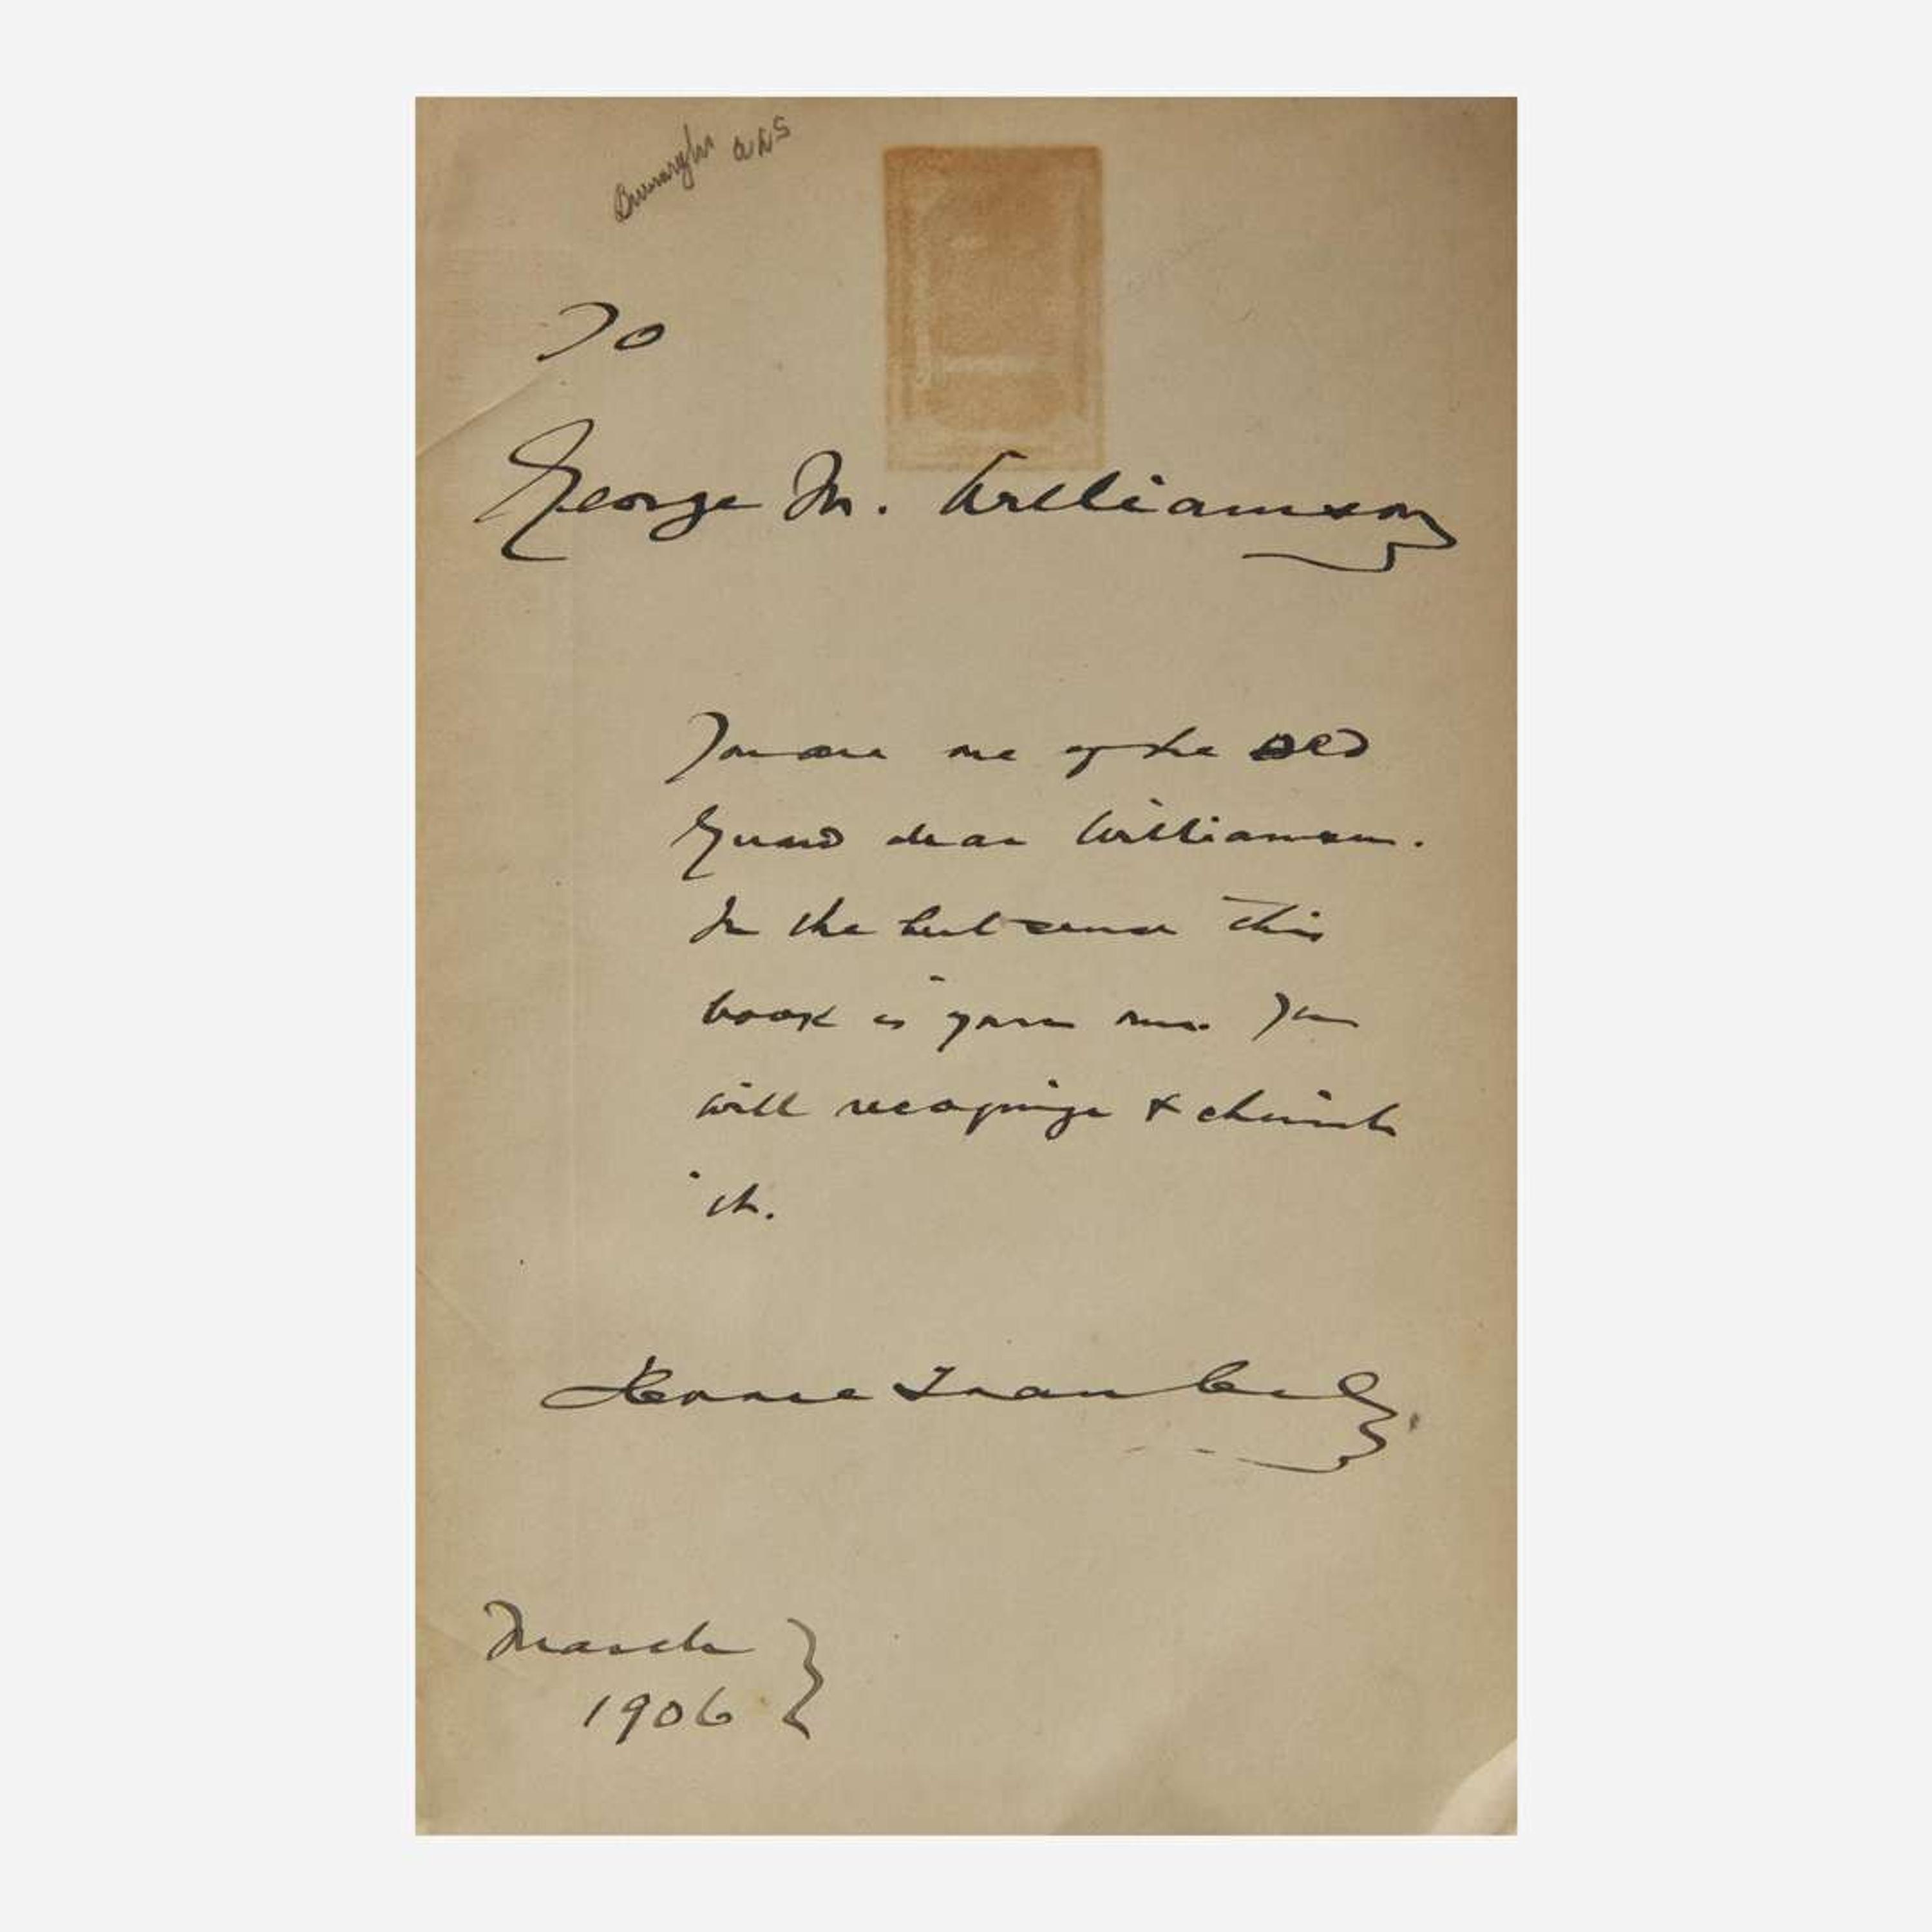 Burroughs ALS
To
George M. Williamson
You are one of the Old
Guard dear Williamson.
In the best sense this
book is yours You
will recognize & cherish
it.
Horace Traubel
March
1906